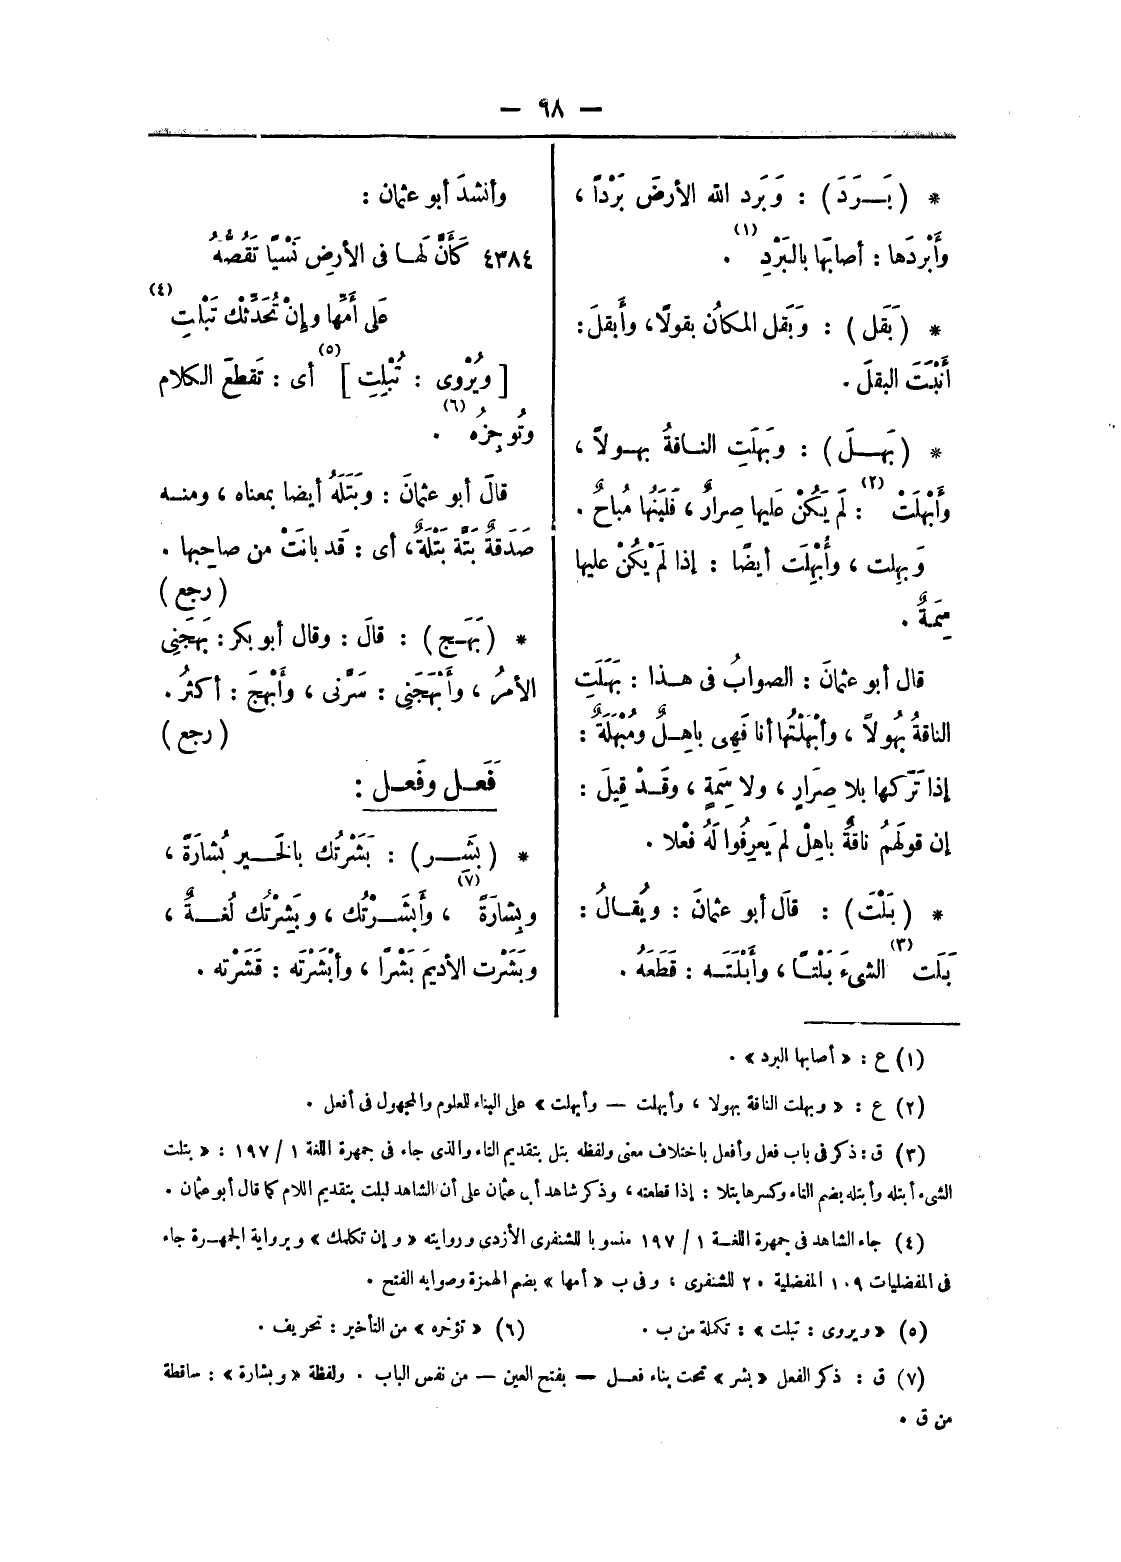 — ٩٨ —
* (بَـرَدَ) : وَبَرد الله الأرضَ بَرْداً ،
وأَبْردَها : أصابَها بالبَرْدِ (١) .
* (بَقَل) : وَبَقل المكانُ بقولًا، وأَبقلَ :
أَنْبَتَ البقلَ .
* (بَهـلَ) : وبَهلَتِ الناقةُ بهـولاً ،
وأَبْهلَتْ (٢) : لَم يَكُنْ عليها صِرارٌ ، فَلَبَنُها مُباحٌ .
وَبهِلت ، وأُبْهِلَت أيضًا : إذا لَمْ يكُنْ عليها
سِمَةٌ .
قال أبو عثمانَ : الصوابُ فى هـذا : بَهَلَتِ
الناقةُ بُهولاً ، وأبْهَلْتُها أنا فَهِى باهِـلٌ ومُبْهَلَةٌ :
إذا تَرَكها بلا صِرَارٍ ، ولا سِمَةٍ ، وقَـدْ قِيلَ :
إن قولَهُم ناقةٌ باهِلْ لم يَعرِفُوا لَهُ فعْلا .
* (بَلْتَ) : قالَ أبو عثمانَ : ويُقـالُ :
بَلَت (٣) الشىءَ بَلْتـًا ، وأَبْلَتَـه : قَطَعَهُ .
وأنشدَ أبو عثمان :
٤٣٨٤ كَأَنَّ لَهـا فى الأرضِ نَسْيًا تَقُصُّهُ
عَلى أَمِّها وإِنْ تُحَدِّثْك تَبْلتِ (٤)
[ ويُرْوى : تُبْلِتِ (٥) ] أى : تَقطعَ الكلام
وتُوجِزُه (٦) .
قالَ أبو عثمانَ : وبَتَلَهُ أيضا بمعناه ، ومنـه
صَدَقةٌ بَتَّة بَتْلَةٌ، أى : قد بانَتْ من صاحِبها .
(رجع)
* (بَهَـج) : قالَ : وقال أبو بكر : بَهَجَنِى
الأمرُ ، وأَبْهَجَنِى : سَرَّنى ، وأَبْهجَ : أكثرُ .
(رجع)
فَعَـل وفَعـل :
* (بشَـر) : بَشَرْتُك بالخَـير بُشارَةً ،
وبِشارَةً (٧) ، وأَبشَـرْتُك ، وبَشِرْتك لُغـةٌ ،
وبَشَرْت الأديمَ بَشْرًا ، وأبْشَرْته : قَشَرْته .
(١) ع : « أصابها البرد » .
(٢) ع : « وبهلت الناقة بهولا ، وأبهلت — وأبهلت » على البناء للعلوم والمجهول فى أفعل .
(٣) ق : ذكر فى باب فعل وأفعل باختلاف معنى ولفظه بتل بتقديم التاء والذى جاء فى جمهرة اللغة ١ / ١٩٧ : « بتلت
الشىء أبتله وأبتله بضم التاء وكسرها بتلا : إذا قطعته ، وذكر شاهد أبى عثمان على أن الشاهد لبلت بتقديم اللام كما قال أبو عثمان .
(٤) جاء الشاهد فى جمهرة اللغـة ١ / ١٩٧ منسوبا للشنفرى الأزدى وروايته « وإن تكلمك » وبرواية الجمهـرة جاء
فى المفضليات ١٠٩ المفضلية ٢٠ للشنفرى ، وفى ب « أمها » بضم الهمزة وصوابه الفتح .
(٥) « ويروى : تبلت » : تكملة من ب . (٦) « تؤخره » من التأخير : تحريف .
(٧) ق : ذكر الفعل « بشر » تحت بناء فعـل — بفتح العين — من نفس الباب . ولفظة « وبشارة » : ساقطة
من ق .